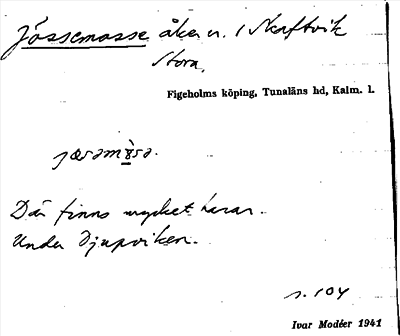 Jössemosse åker n. 1 Skaftvik
Stora,
Figeholms köping, Tunaläns hd, Kalm. l.
Där finns mycket harar.
Under Djupviken.
s. 104
Ivar Modéer 1941